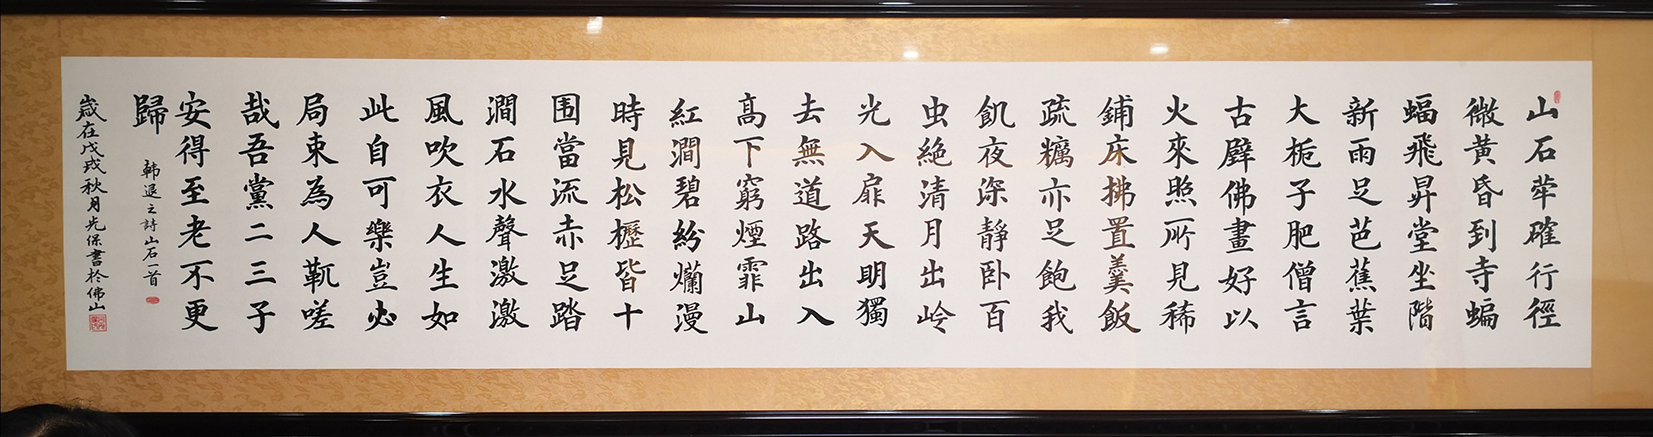 山石荦確行徑
微黄昏到寺蝙
蝠飛昇堂坐階
新雨足芭蕉葉
大栀子肥僧言
古壁佛畫好以
火來照所見稀
鋪床拂置羹飯
疏糲亦足飽我
飢夜深靜卧百
虫絶清月出岭
光入扉天明獨
去無道路出入
高下窮煙霏山
紅澗碧紛爛漫
時見松櫪皆十
围當流赤足踏
澗石水聲激激
風吹衣人生如
此自可樂豈必
局束為人鞿嗟
哉吾黨二三子
安得至老不更
歸
韩退之詩山石一首
歲在戊戌秋月光保書於佛山